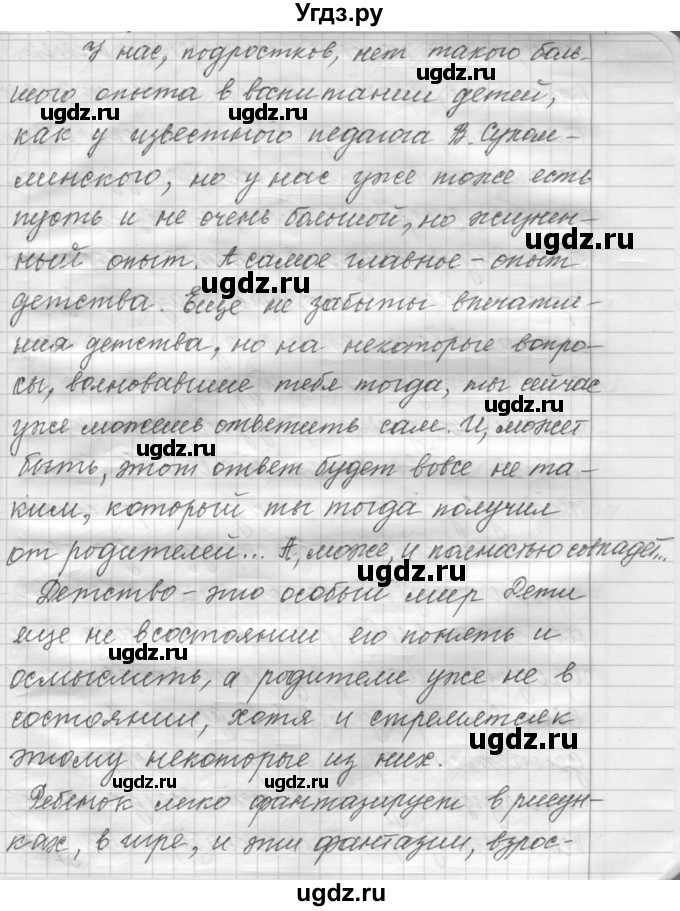 Угдз.ру
У нас, подростков, нет такого боль-
шого опыта в воспитании детей,
как у известного педагога В. Сухом-
линского, но у нас уже тоже есть
пусть и не очень большой, но жизнен-
ный опыт. А самое главное - опыт
детства. Еще не забыты впечатле-
ния детства, но на некоторые вопро-
сы, волновавшие тебя тогда, ты сейчас
уже можешь ответить сам. И, может
быть, этот ответ будет вовсе не та-
ким, который ты тогда получил
от родителей... А, може, и полностью совпадет...
Детство - это особый мир Дети
еще не в состоянии его понять и
осмыслить, а родители уже не в
состоянии, хотя и стремятся к
этому некоторые из них.
Ребенок легко фантазирует в рисун-
ках, в игре, и эти фантазии, взрос-
ugdz.ru
ugdz.ru
ugdz.ru
ugdz.ru
ugdz.ru
ugdz.ru
ugdz.ru
ugdz.ru
ugdz.ru
ugdz.ru
ugdz.ru
ugdz.ru
ugdz.ru